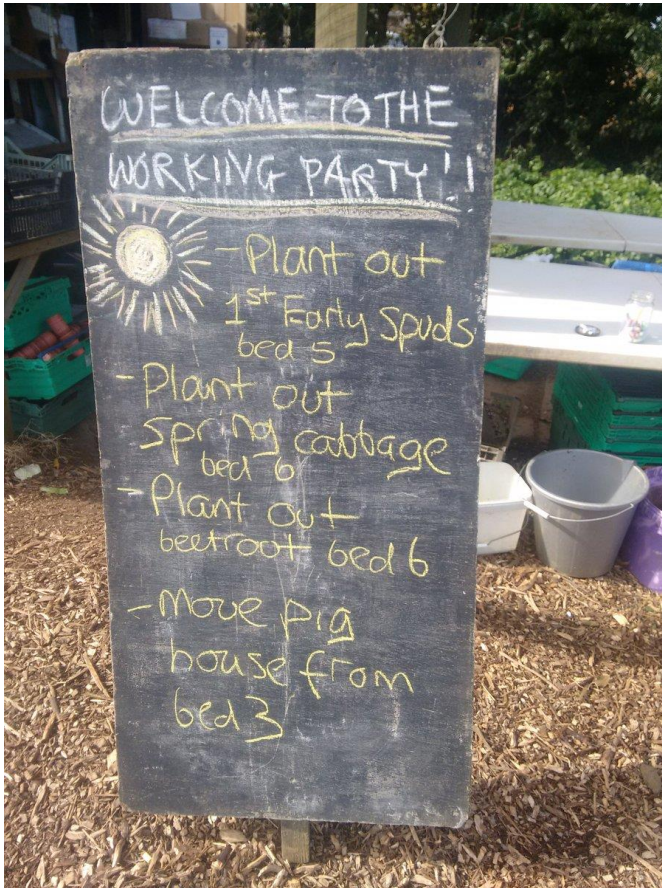 WELCOME TO THE
WORKING PARTY!!
- Plant out
1st Early Spuds
bed 5
- Plant out
spring cabbage
bed 6
- Plant out
beetroot bed 6
- Move pig
house from
bed 3